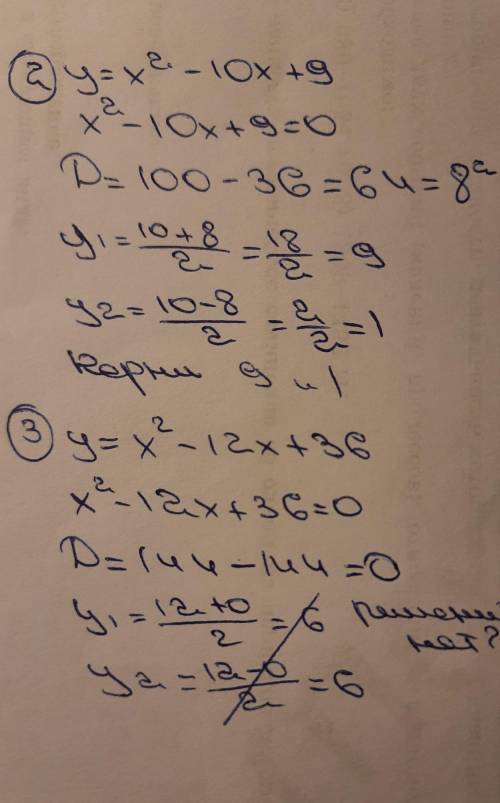 ② y = x² - 10x + 9
x² - 10x + 9 = 0
D = 100 - 36 = 64 = 8²
y₁ = (10+8)/2 = 18/2 = 9
y₂ = (10-8)/2 = 2/2 = 1
Корни 9 и 1
③ y = x² - 12x + 36
x² - 12x + 36 = 0
D = 144 - 144 = 0
y₁ = (12+0)/2 = 6 решений
нет?
y₂ = (12-0)/2 = 6